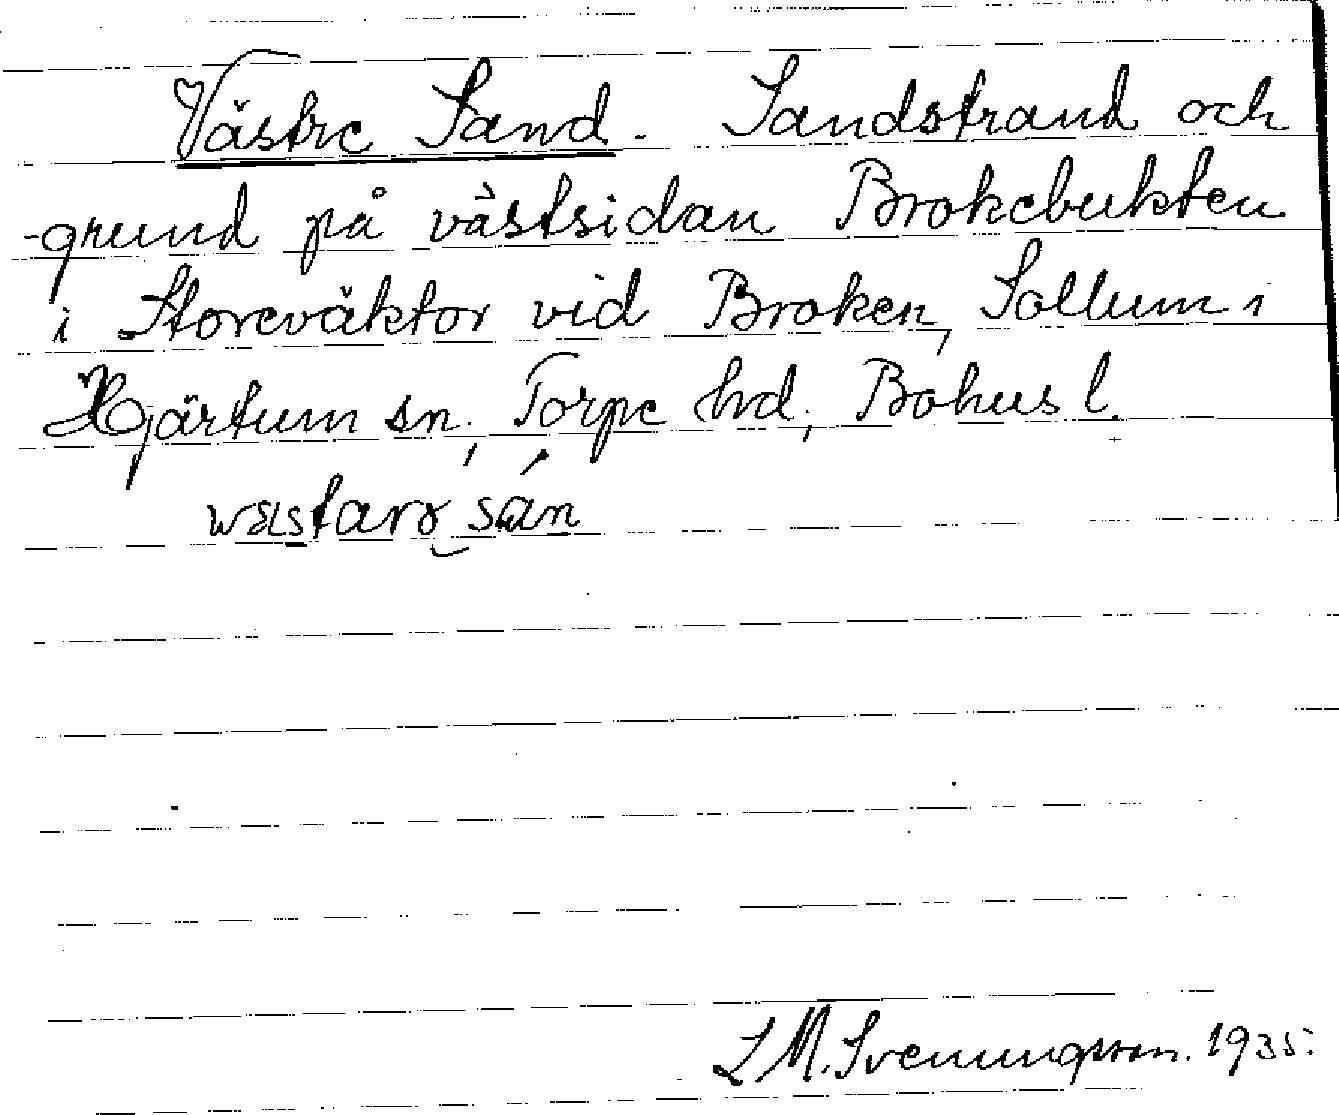 Västre Sand. Sandstrand och
-grund på västsidan Brokebukten
i Storeväktor vid Broken, Sollum i
Hjärtum sn; Torpe hd; Bohus l.
L M. Svenungsson. 1935.